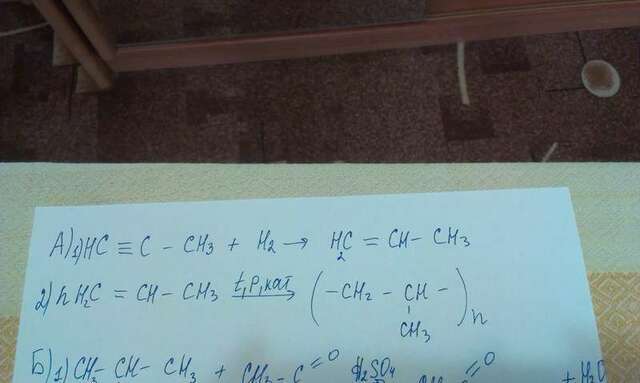 А) 1) HC ≡ C - CH3 + H2 → H2C = CH - CH3
2) n H2C = CH - CH3 t, P, кат → (-CH2 - CH(CH3) -)n
Б) 1) CH3 CH - CH3 + CH3 - C =O H2SO4 C =O + H2O